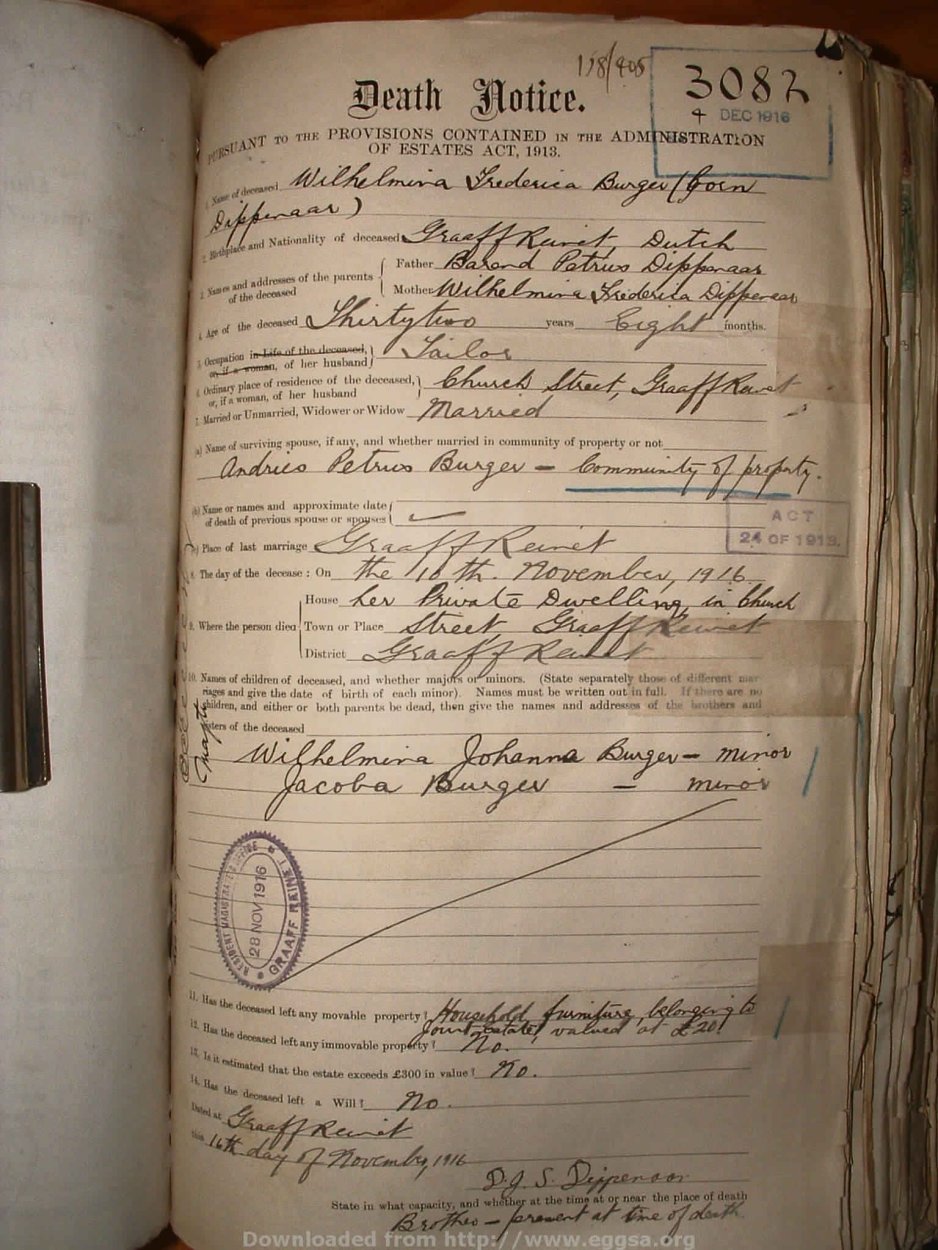 118/405
3082
4 DEC 1916
Death Notice.
PURSUANT TO THE PROVISIONS CONTAINED IN THE ADMINISTRATION
OF ESTATES ACT, 1913.
1. Name of deceased Wilhelmina Frederica Burger (born
Dippenaar)
2. Birthplace and Nationality of deceased Graaff Reinet, Dutch
3. Names and addresses of the parents of the deceased { Father Barend Petrus Dippenaar
Mother Wilhelmina Frederica Dippenaar
4. Age of the deceased Thirtytwo years Eight months.
5. Occupation in Life of the deceased, or, if a woman, of her husband } Tailor
6. Ordinary place of residence of the deceased, or, if a woman, of her husband } Church Street, Graaff Reinet
7. Married or Unmarried, Widower or Widow Married
(a) Name of surviving spouse, if any, and whether married in community of property or not
Andries Petrus Burger – Community of property.
(b) Name or names and approximate date of death of previous spouse or spouses {
ACT
24 OF 1913.
(c) Place of last marriage Graaff Reinet
8. The day of the decease : On the 10th. November, 1916
9. Where the person died { House her Private Dwelling, in Church
Town or Place Street Graaff Reinet
District Graaff Reinet
10. Names of children of deceased, and whether majors or minors. (State separately those of different mar-
riages and give the date of birth of each minor). Names must be written out in full. If there are no
children, and either or both parents be dead, then give the names and addresses of the brothers and
sisters of the deceased
Wilhelmina Johanna Burger – minor
Jacoba Burger – minor
RESIDENT MAGISTRATE'S OFFICE
28 NOV 1916
GRAAFF REINET
11. Has the deceased left any movable property? Household furniture belonging to
Joint estate, valued at £20.
12. Has the deceased left any immovable property? No.
13. Is it estimated that the estate exceeds £300 in value? No.
14. Has the deceased left a Will? No.
Dated at Graaff Reinet
this 16th day of November, 1916
D.J.S. Dippenaar
State in what capacity, and whether at the time at or near the place of death
Brother – present at time of death
Downloaded from http://www.eggsa.org